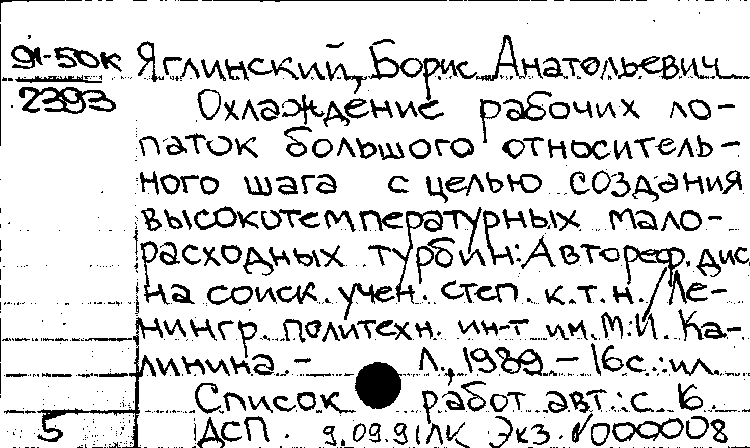 91-50к Яглинский, Борис Анатольевич
2393 Охлаждение рабочих ло-
паток большого относитель-
ного шага с целью создания
высокотемпературных мало-
расходных турбин: Автореф. дис
на соиск. учен. степ. к.т.н. / Ле-
нингр. политехн. ин-т им. М.И. Ка-
линина. - Л., 1989. - 16 с.: ил.
Список работ авт.: с. 16
5 ДСП. 9.09.91 ЛК Экз. №000008